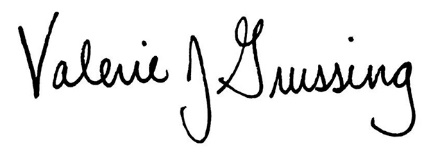 Valerie J Grussing